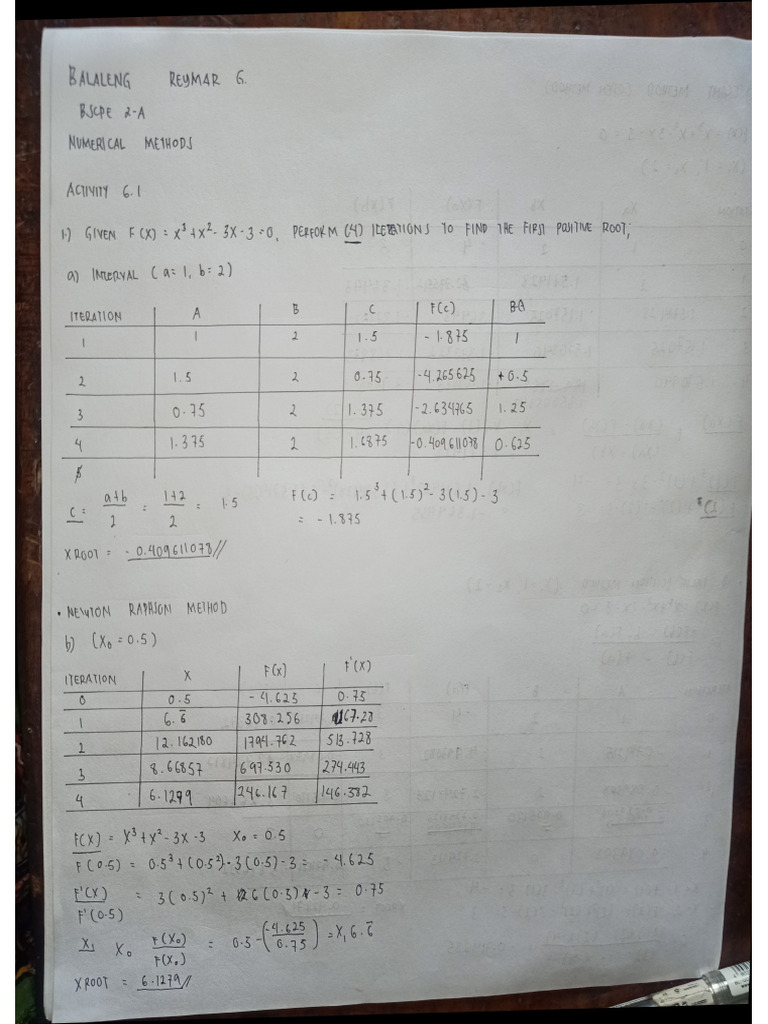 BALALENG REYMAR G.
BSCPE 2-A
NUMERICAL METHODS
ACTIVITY 6.1
1.) GIVEN F(X) = X³+X²- 3X-3=0, PERFORM (4) ITERATIONS TO FIND THE FIRST POSITIVE ROOT;
a) INTERVAL (a=1, b=2)
ITERATION A B C F(C)
1 1 2 1.5 -1.875 1
2 1.5 2 0.75 -4.265625 +0.5
3 0.75 2 1.375 -2.634765 1.25
4 1.375 2 1.6875 -0.409611078 0.625
C = a+b/2 = 1+2/2 = 1.5 F(c) = 1.5³+(1.5)²-3(1.5)-3
= -1.875
XROOT = -0.409611078//
• NEWTON RAPHSON METHOD
b) (X₀=0.5)
ITERATION X F(X) F'(X)
0 0.5 -4.625 0.75
1 6.6̅ 308.256 167.28
2 12.162180 1794.762 513.728
3 8.66857 697.530 274.443
4 6.1279 246.167 146.382
F(X) = X³+X²-3X-3 X₀=0.5
F(0.5) = 0.5³+(0.5²)-3(0.5)-3 = -4.625
F'(X) = 3(0.5)² + 6(0.5) -3 = 0.75
F'(0.5)
X₁ X₀ F(X₀)/F(X₀) = 0.5-(-4.625/0.75) = X₁ 6.6̅
XROOT = 6.1279//